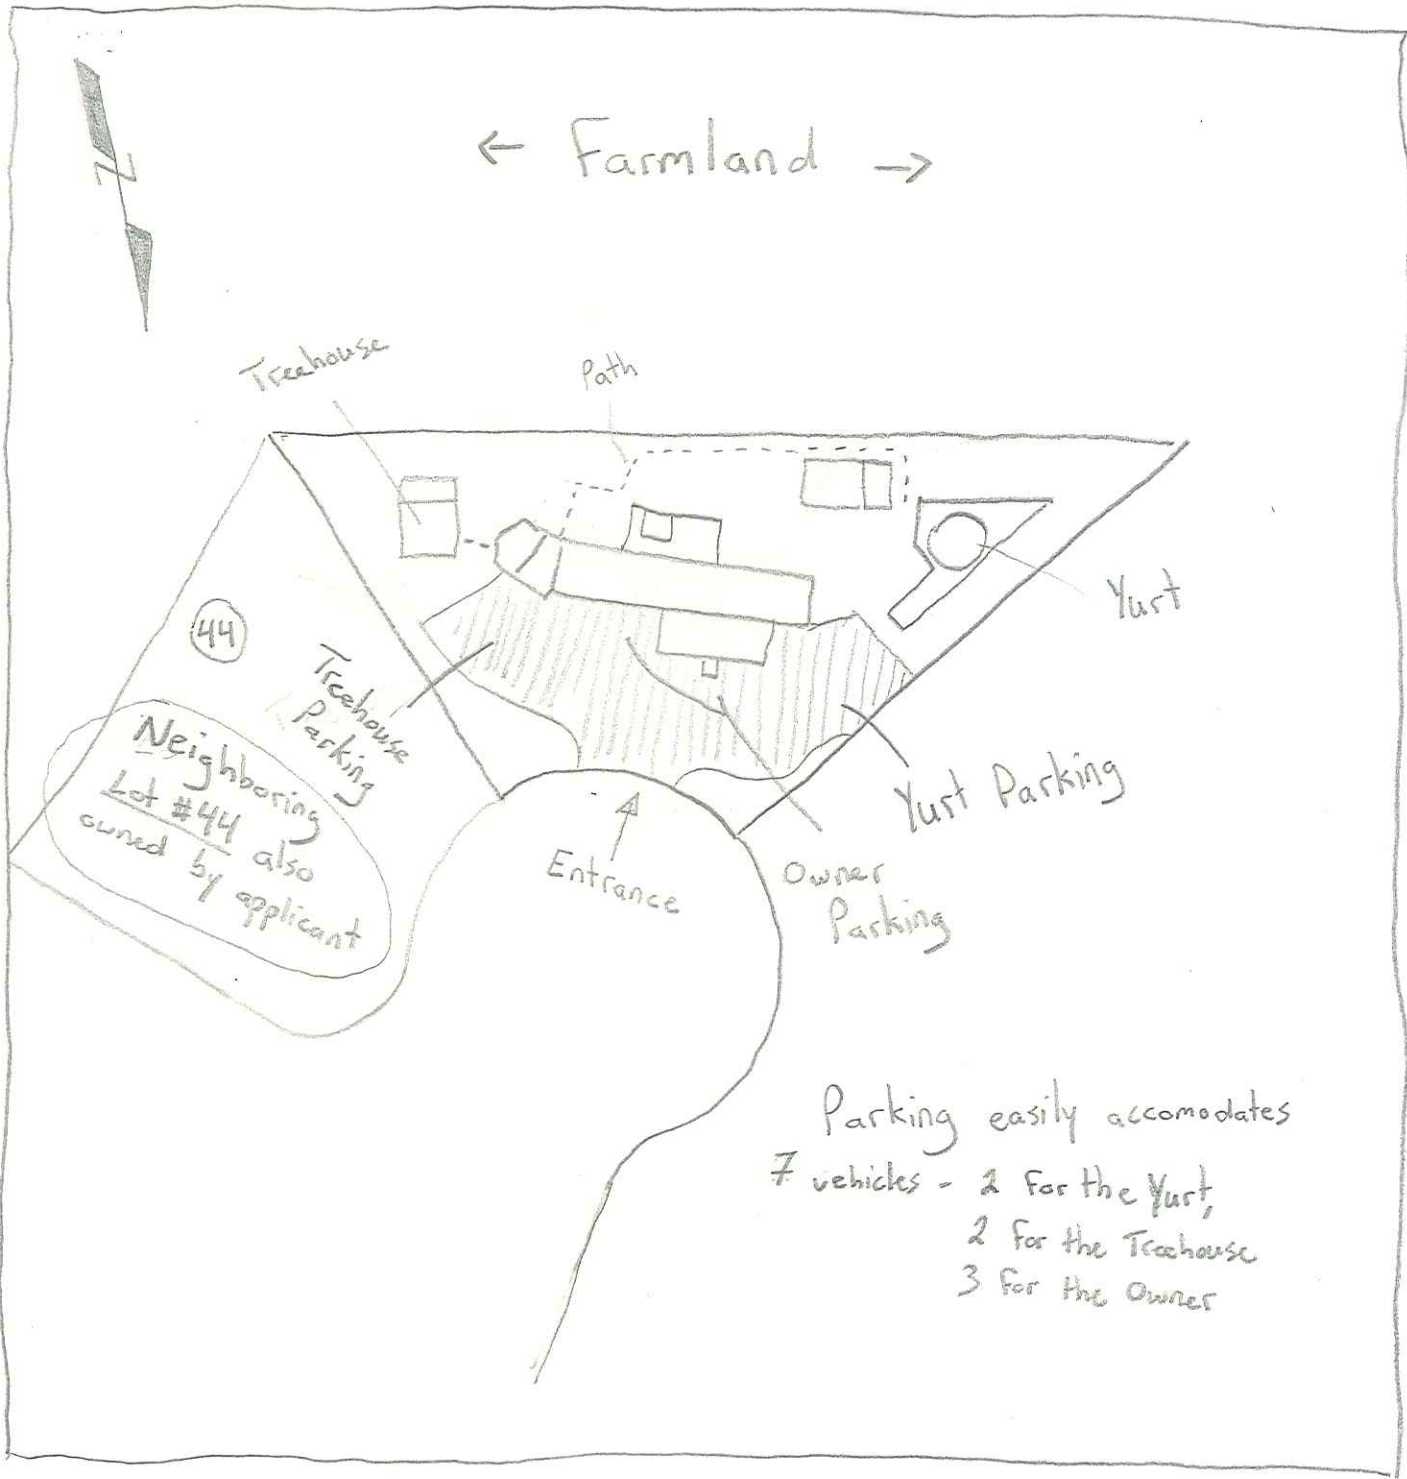 N
← Farmland →
Treehouse
Path
Yurt
44
Treehouse
Parking
Neighboring
Lot #44 also
owned by applicant
Yurt Parking
Entrance
Owner
Parking
Parking easily accomodates
7 vehicles - 2 for the Yurt,
2 for the Treehouse
3 for the Owner